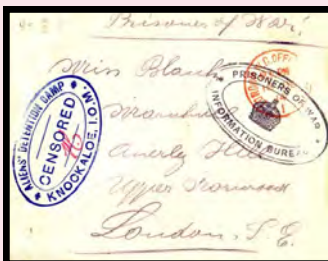 Prisoner of War.
Miss Blanch
Anerley Hill
Upper Norwood
London, S.E.
ALIENS' DETENTION CAMP
CENSORED
KNOCKALOE, I.O.M.
PRISONERS OF WAR
INFORMATION BUREAU